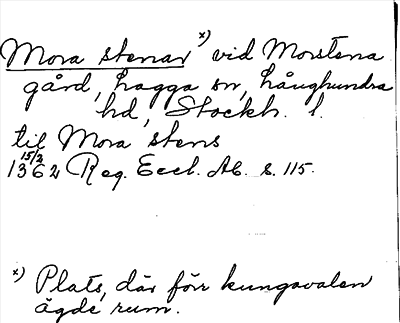 Mora stenar x) vid Morstena
gård, Lagga sn, Långhundra
hd, Stockh. l.
til Mora stens
15/2
1362 Reg. Eccl. Ab. s. 115.
x) Plats, där förr kungavalen
ägde rum.